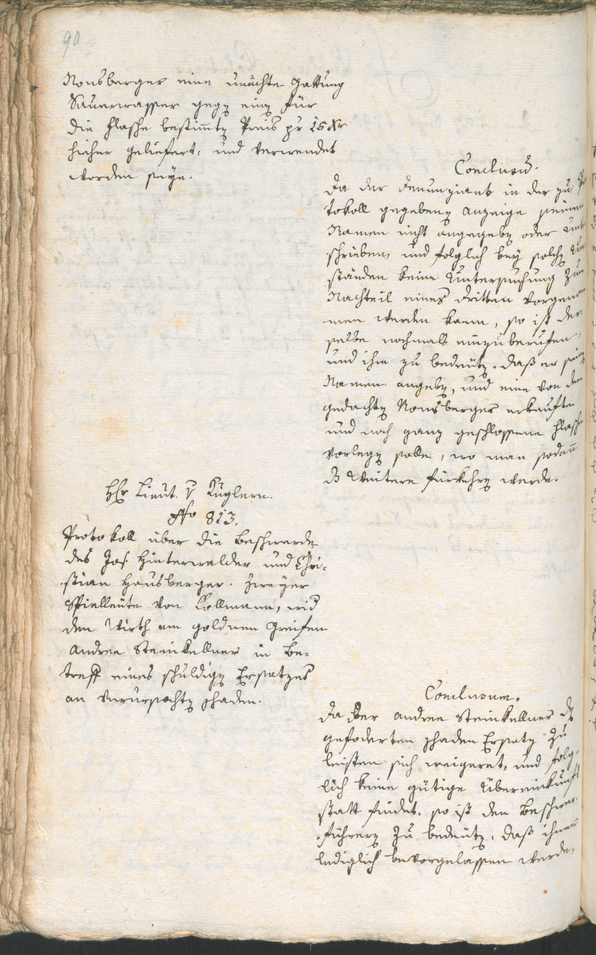 90
Nonsberger eine unächte Gattung
Sauerwasser gegen einen für
die Flasche bestimmten Preis pr 15 xr
hieher geliefert, und verwendet
worden seye.
Conclusum.
Da der Denunziant in der zu Pro
tokoll gegebenen Anzeige seinen
Namen nicht angegeben oder unter
schrieben, und folglich bey solchen Um
ständen keine Untersuchung zum
Nachteil eines dritten vorgenom
men werden kann, so ist der
selbe nochmals einzuberufen,
und ihm zu bedeuten, daß er seinen
Namen angeben, und eine von dem
gedachten Nonsberger erkaufte
und noch ganz geschlossene Flasche
vorlegen solle, wo man sodann
das weitere fürkehren werde.
Hr Lieut. v Kuglern.
No 813.
Protokoll über die Beschwerde
des Jos. Hinterwalder und Chri-
stian Hausberger. Zweyer
Spielleüte von Kollmann, wid
den Wirth am goldnen Greifen
Andree Steinkellner in Be-
treff eines schuldigen Ersatzes
an verursachten Schaden.
Conclusum.
Da der Andree Steinkellner den
geforderten Schaden Ersatz zu
leisten sich weigeret, und folg-
lich keine gütige Übereinkunft
statt findet, so ist den Beschwer-
führern zu bedeuten, daß ihnen
lediglich bevorgelassen werde,